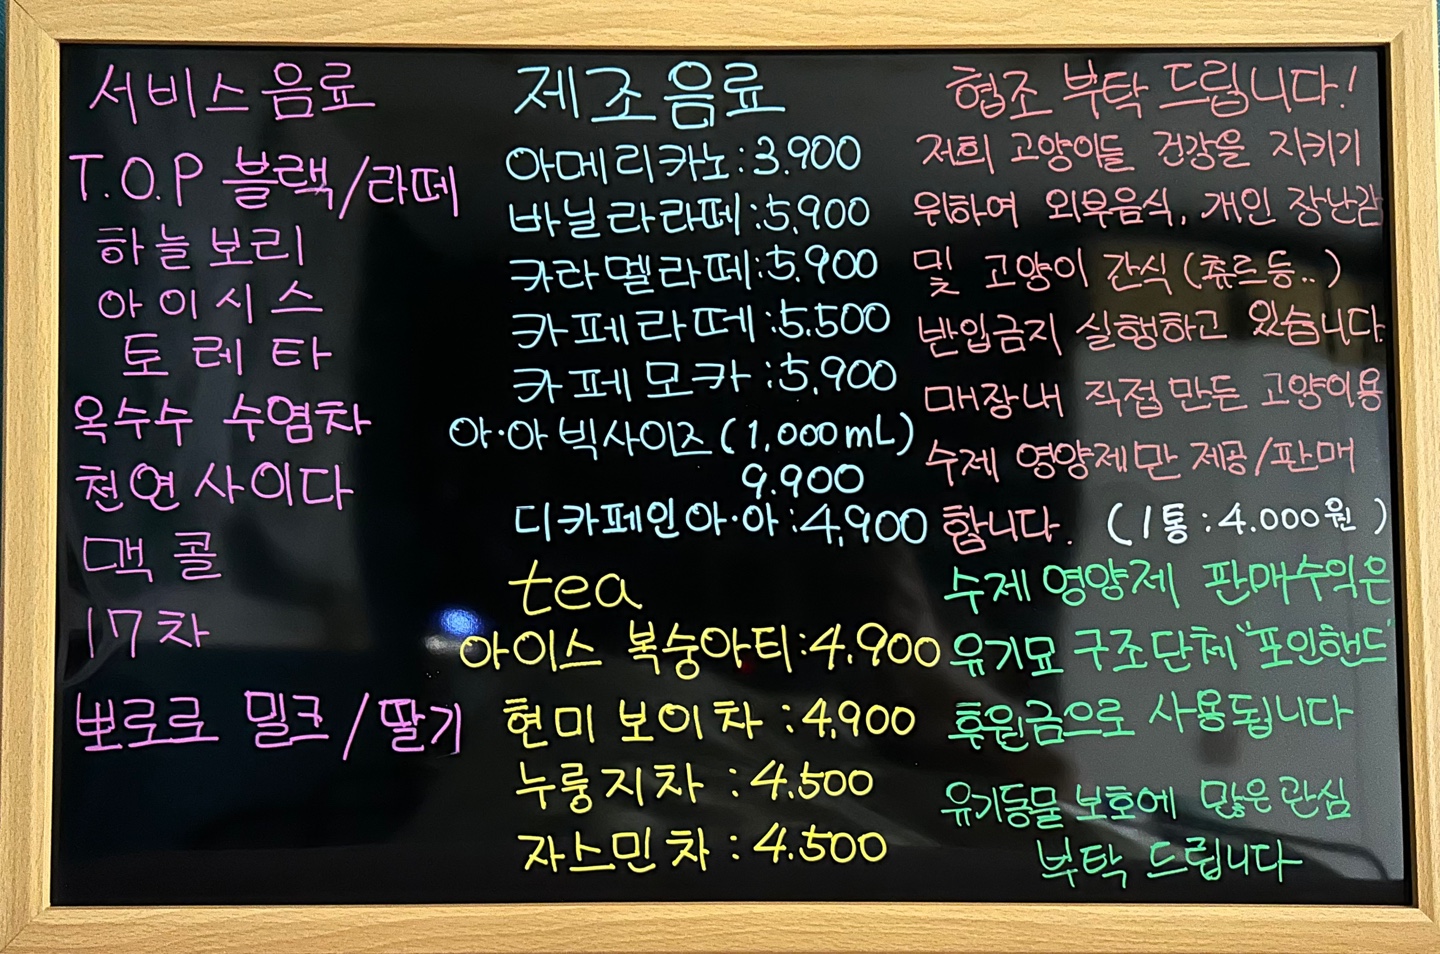 서비스음료
T.O.P 블랙/라떼
하늘보리
아이시스
토레타
옥수수 수염차
천연사이다
맥콜
17차
뽀로로 밀크/딸기
제조음료
아메리카노:3.900
바닐라라떼:5,900
카라멜라떼:5.900
카페라떼:5.500
카페모카:5,900
아·아 빅사이즈(1,000mL)
9.900
디카페인아·아:4,900
tea
아이스 복숭아티:4.900
현미 보이차 :4,900
누룽지차 :4.500
자스민차 :4.500
협조 부탁 드립니다!
저희 고양이들 건강을 지키기
위하여 외부음식, 개인 장난감
및 고양이 간식(츄르등..)
반입금지 실행하고 있습니다.
매장내 직접 만든 고양이용
수제 영양제만 제공/판매
합니다. (1통:4.000원)
수제 영양제 판매수익은
유기묘 구조단체 "포인핸드"
후원금으로 사용됩니다
유기동물 보호에 많은 관심
부탁 드립니다